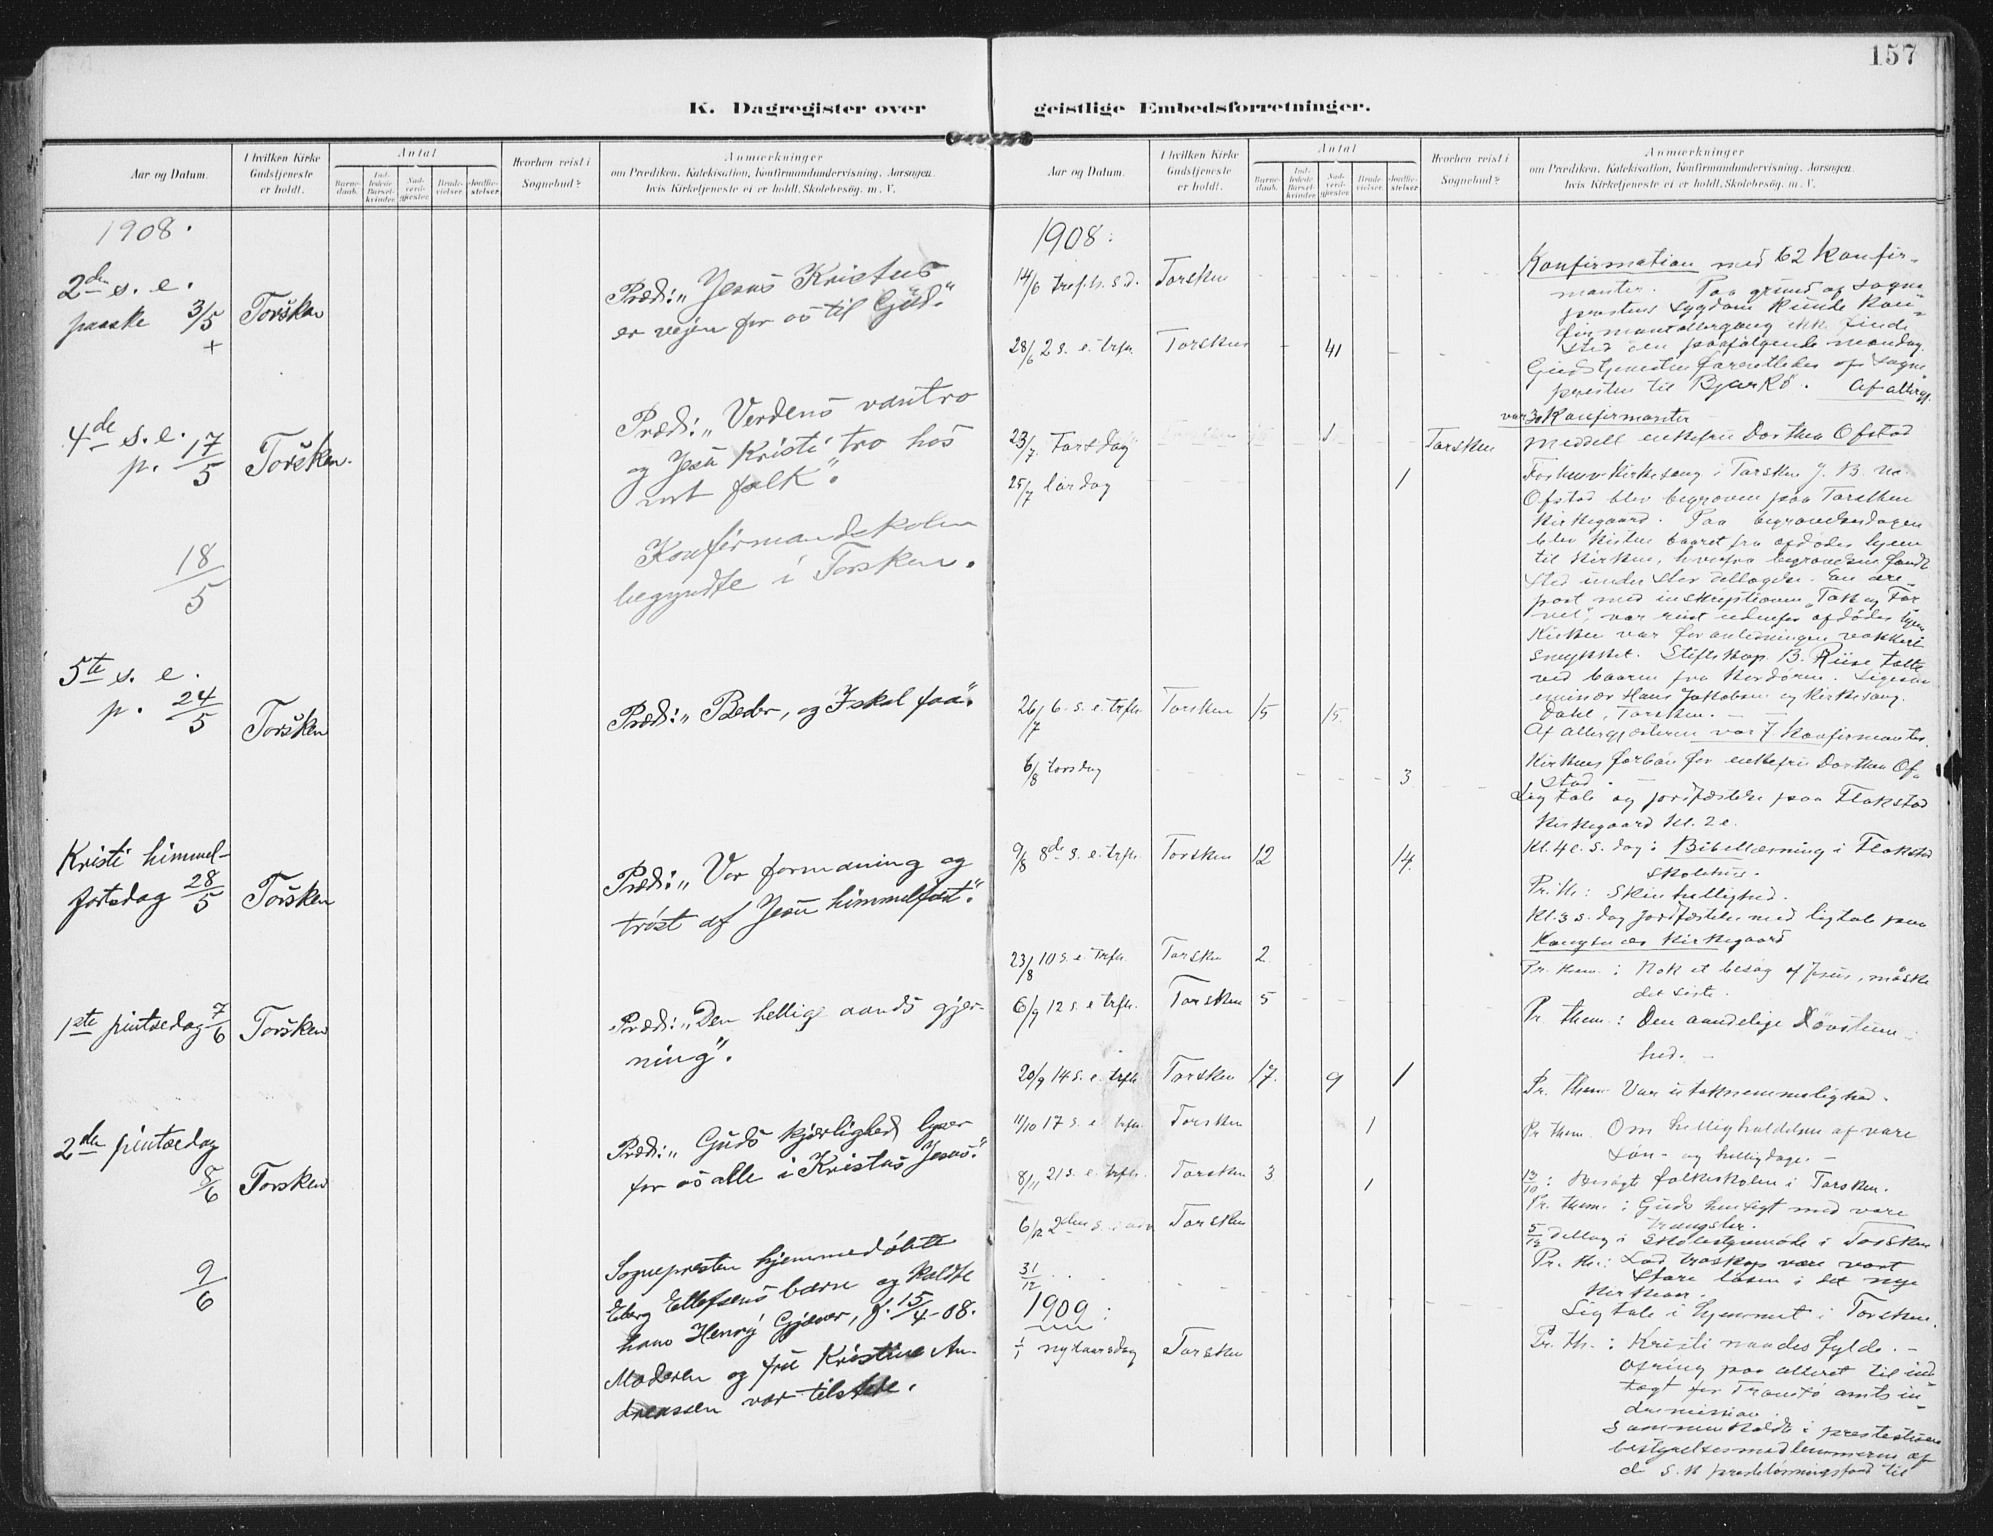 157
K. Dagregister over
geistlige Embedsforretninger.
Aar og Datum.
I hvilken Kirke
Gudstjeneste
er holdt.
Antal
Barne-
daab.
Ind-
ledede
Barsel-
kvinder.
Nad-
verd-
gjester.
Brude-
vielser.
Jordfæ-
stelser.
Hvorhen reist i
Sognebud?
Anmærkninger
om Prædiken, Katekisation, Konfirmandundervisning, Aarsagen,
hvis Kirketjeneste ei er holdt, Skolebesøg, m. V.
1908.
2den s. e.
paaske 3/5
+
Torsken
Præd: "Jesus Kristus
er vejen for os til Gud."
4de s. e.
p. 17/5
Torsken.
Præd: "Verdens vantro
og Jesu Kristi tro hos
sit folk".
18/5
Konfirmandskolen
begyndte i Torsken.
5te s. e.
p. 24/5
Torsken
Præd: "Beder, og I skal faa".
Kristi himmel-
fartsdag 28/5
Torsken
Præd: "Vor formaning og
trøst af Jesu himmelfart".
1ste pintsedag 7/6
Torsken
Præd: "Den hellige aands gjer-
ning".
2den pintsedag
8/6
Torsken
Præd: "Guds kjærlighed lyser
for os alle i Kristus Jesus."
9/6
Sognepresten hjemmedøbte
Eberg Ellefsens barn og kaldte
ham Henry Gjæver, f. 15/4-08.
Moderen og fru Kristine An-
dreassen var tilstede.
Aar og Datum.
I hvilken Kirke
Gudstjeneste
er holdt.
Antal
Barne-
daab.
Ind-
ledede
Barsel-
kvinder.
Nad-
verd-
gjester.
Brude-
vielser.
Jordfæ-
stelser.
Hvorhen reist i
Sognebud?
Anmærkninger
om Prædiken, Katekisation, Konfirmandundervisning, Aarsagen,
hvis Kirketjeneste ei er holdt, Skolebesøg, m. V.
1908:
14/6 tref. h. s. d. Torsken
Konfirmation med 62 konfir-
manter. Paa grund af sogne
prestens sygdom kunde kon-
firmantaltergang ikke finde
sted den paafølgende mandag.
28/6 2 s. e. trfh. Torsken 41
Gudstjenesten forrettedes af sogne
presten til Bjarkö. Af alterg.
var 30 Konfirmanter
23/7 Torsdag 1 Torsken meddelt enkefru Dorthea Ofstad
25/7 lørdag 1
Forhenv. Kirkesang i Torsken J. B. M.
Ofstad blev begraven paa Torsken
kirkegaard. Paa begravelsesdagen
blev kisten baaret fra afdødes hjem
til kirken, hvorfra begravelsen fandt
sted under stor deltagelse. En ære-
port med inskriptionen "Tak og Far
vel", var reist udenfor afdødes hjem
Kirken var for anledningen vakkert
smykket. Stiftskap. B. Riise talte
ved baaren fra kordøren. Ligesaa
emissær Hans Jakobsen og kirkesang.
Dahl, Torsken. -
26/7 6. s. e. trfh. Torsken 15 15
Af altergjesterne var 7 konfirmanter.
6/8 torsdag 3
Kirkens forbøn for enkefru Dorthea Of-
stad.
Ligtale og jordfæstelse paa Flakstad
kirkegaard kl. 2 e.
9/8 8de s. e. trfh. Torsken 12 14.
Kl. 4 e. s. dag: Bibellæsning i Flakstad
skolehus.
Pr. th: Skinhellighed.
Kl. 3 s. dag jordfæstelse med ligtale paa
Kongsnes kirkegaard
23/8 10 s. e. trfh. Torsken 2
Pr. them.: Nok et besøg af Jesus, måske
det siste.
6/9 12 s. e. trfh. Torsken 5
Pr. them.: Den aandelige Døvstum-
hed. -
20/9 14 s. e. trfh. Torsken 17. 9 1
Pr. them Vor utaknemmelighed.
11/10 17 s. e. trfh. Torsken 1
Pr them. Om helligholdelsen af vore
søn- og helligdage. -
8/11 21 s. e. trfh. Torsken 3 1
13/10: Besøgt folkeskolen i Torsken.
Pr. them.: Guds hensigt med vore
trængsler.
6/12 2den s. i adv Torsken
5/12 deltog i skolestyremøde i Torsken
Pr. th.: Lad troskap være vort
store løsen i det nye
kirkeaar.
31/12
Ligtale i hjemmet i Torsken.
1909:
1/1 nytaarsdag Torsken
Pr. th.: Kristi naades fylde. -
Ofring paa alteret til ind
tægt for Tromsø amts in-
dremission.
Sammenholdt i
bestyrelsesmedlemmerne af
til